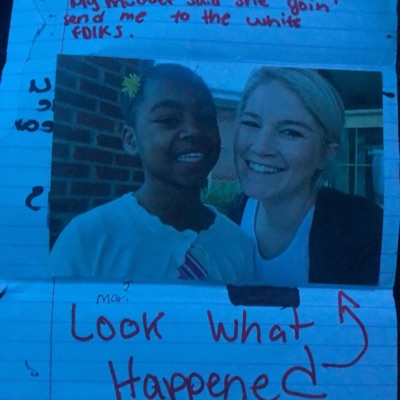 My Mother said she goin'
send me to the white
folks.
Look What
Happened